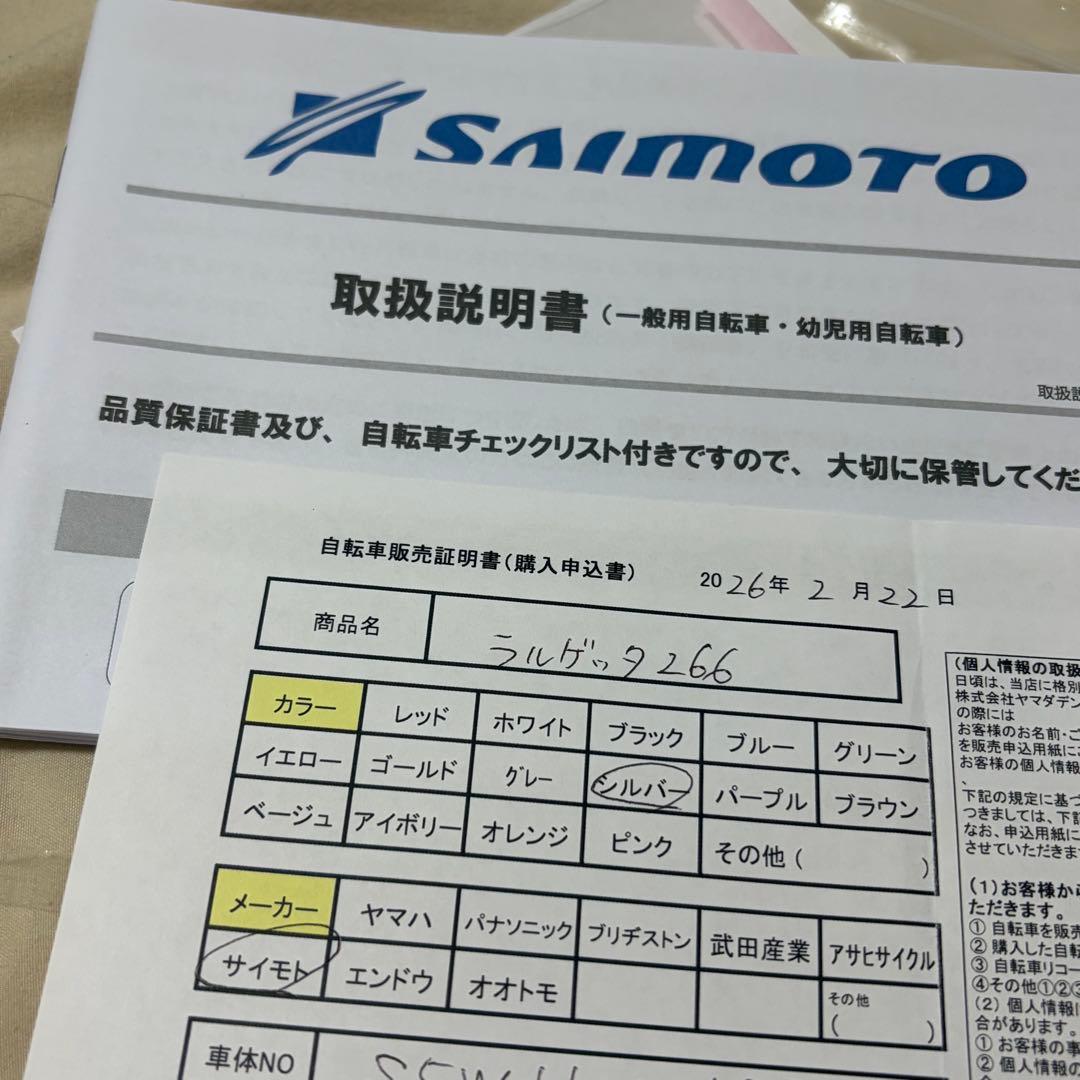 SAIMOTO
取扱説明書（一般用自転車・幼児用自転車）
取扱説
品質保証書及び、自転車チェックリスト付きですので、大切に保管してくだ
自転車販売証明書（購入申込書） 2026年 2月22日
商品名 ラルゲッタ266
カラー レッド ホワイト ブラック ブルー グリーン
イエロー ゴールド グレー シルバー パープル ブラウン
ベージュ アイボリー オレンジ ピンク その他（ ）
メーカー ヤマハ パナソニック ブリヂストン 武田産業 アサヒサイクル
サイモト エンドウ オオトモ その他（ ）
車体NO
（個人情報の取扱
日頃は、当店に格別
株式会社ヤマダデン
の際には
お客様のお名前・ご
を販売申込用紙に
お客様の個人情報
、
下記の規定に基づ
つきましては、下記
なお、申込用紙に
させていただきます
（1）お客様から
ただきます。
① 自転車を販売
② 購入した自転
③ 自転車リコー
④その他①②③
（2）個人情報
合があります。
① お客様の事
② 個人情報の